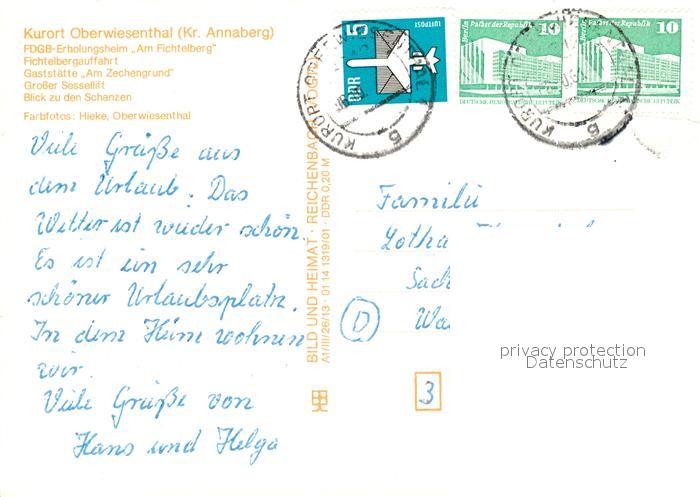 Kurort Oberwiesenthal (Kr. Annaberg)
FDGB-Erholungsheim „Am Fichtelberg"
Fichtelbergauffahrt
Gaststätte „Am Zechengrund"
Großer Sessellift
Blick zu den Schanzen
Farbfotos: Hieke, Oberwiesenthal
Viele Grüße aus
dem Urlaub. Das
Wetter ist wieder schön.
Es ist ein sehr
schöner Urlaubsplatz.
In dem Heim wohnen
wir.
Viele Grüße von
Hans und Helga
BILD UND HEIMAT · REICHENBACH
A1/III/26/13 · 01 14 1319/01 · DDR 0,20 M
DDR 5
LUFTPOST
Berlin Palast der Republik 10
DEUTSCHE REPUBLIK
Berlin Palast der Republik 10
REPUBLIK
KURORT
5
KURORT
5
Familie
Lotha
Sach
Wa
D
3
privacy protection
Datenschutz